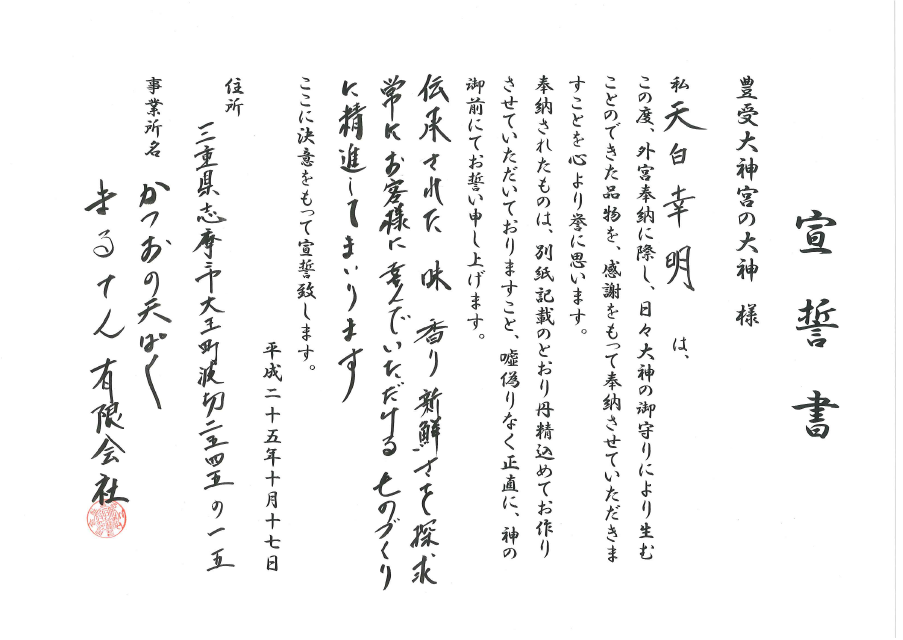 宣誓書
豊受大神宮の大神 様
私 天白幸明 は、
この度、外宮奉納に際し、日々大神の御守りにより生む
ことのできた品物を、感謝をもって奉納させていただきま
すことを心より誉に思います。
奉納されたものは、別紙記載のとおり丹精込めてお作り
させていただいておりますこと、嘘偽りなく正直に、神の
御前にてお誓い申し上げます。
伝承された 味 香り 新鮮さを探求
常にお客様に喜んでいただける ものづくり
に精進してまいります
ここに決意をもって宣誓致します。
平成二十五年十月十七日
住所 三重県志摩市大王町波切二五四五の一五
事業所名 かつおの天ぱく
まるてん有限会社